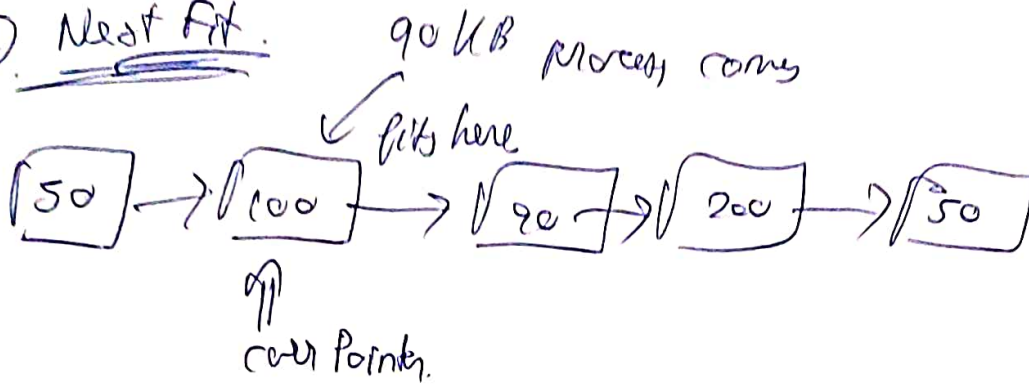 ) Next Fit.
90 KB process comes
fits here
50 → 100 → 90 → 200 → 50
curr Pointer.